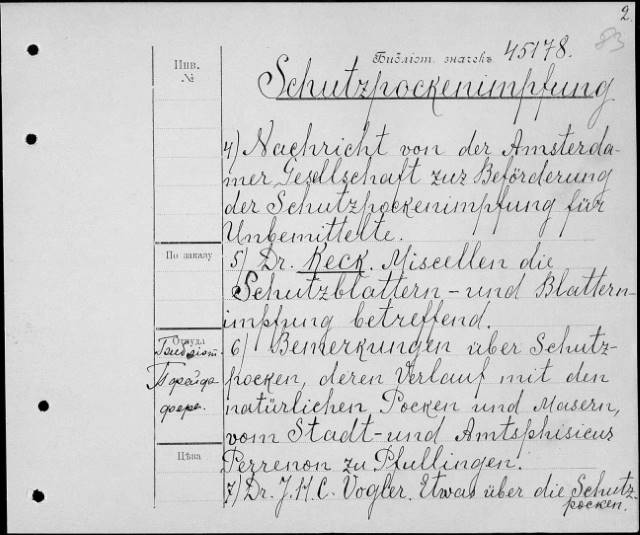 2.
83
Инв.
№
Библіот. значекъ 45178.
Schutzpockenimpfung
4) Nachricht von der Amsterda-
mer Gesellschaft zur Beförderung
der Schutzpockenimpfung für
Unbemittelte.
По заказу
5) Dr. Keck. Miscellen die
Schutzblattern- und Blattern-
impfung betreffend.
Откуда
Библіот.
6) Bemerkungen über Schutz-
pocken, deren Verlauf mit den
natürlichen Pocken und Masern,
vom Stadt- und Amtsphisicus
Perrenon zu Pfullingen.
Цѣна
7) Dr. J. H. C. Vogler. Etwas über die Schutz-
pocken.